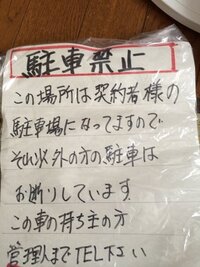 駐車禁止
この場所は契約者様の
駐車場になってますので
それ以外の方の駐車は
お断りしています
この車の持ち主の方
管理人までTEL下さい